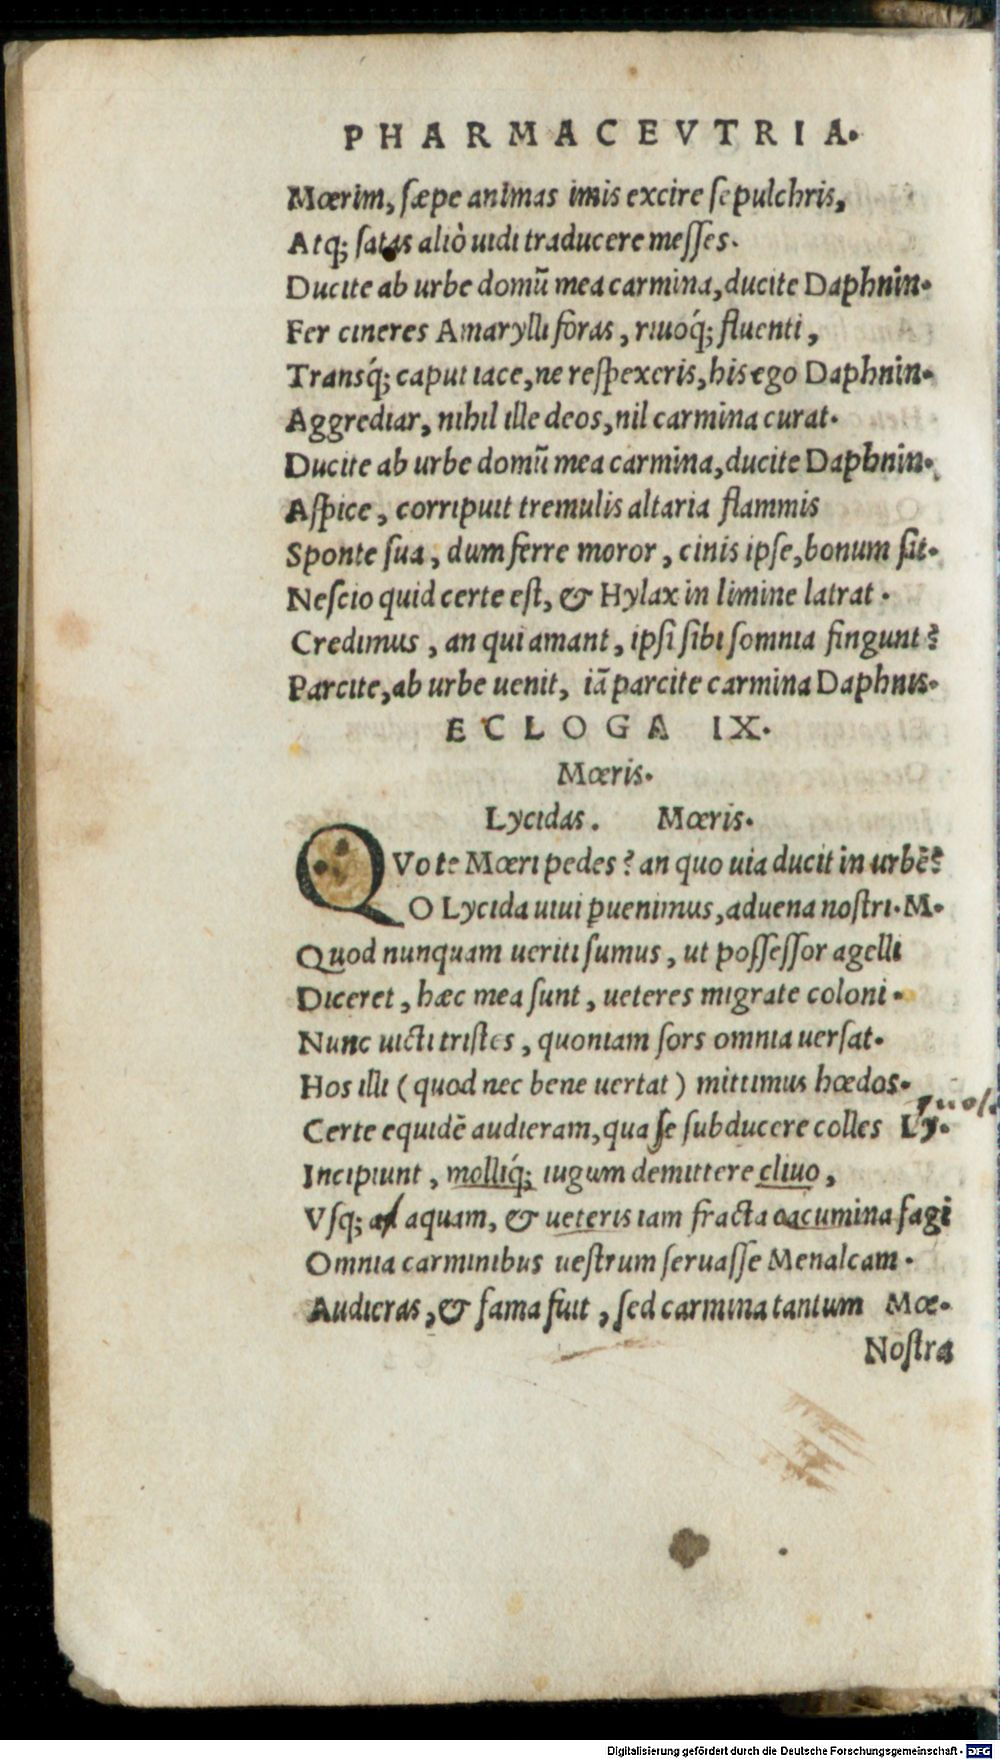 PHARMACEVTRIA.
Mœrim, ſæpe animas imis excire ſepulchris,
Atq; ſatas aliò uidi traducere meſſes.
Ducite ab urbe domũ mea carmina, ducite Daphnin.
Fer cineres Amarylli foras, riuoq́; fluenti,
Transq́; caput iace, ne reſpexeris, his ego Daphnin.
Aggrediar, nihil ille deos, nil carmina curat.
Ducite ab urbe domũ mea carmina, ducite Daphnin.
Aſpice, corripuit tremulis altaria flammis
Sponte ſua, dum ferre moror, cinis ipſe, bonum ſit.
Neſcio quid certe eſt, & Hylax in limine latrat.
Credimus, an qui amant, ipſi ſibi ſomnia fingunt?
Parcite, ab urbe uenit, iã parcite carmina Daphnis.
ECLOGA IX.
Mœris.
Lycidas. Mœris.
QVo te Mœri pedes? an quo uia ducit in urbẽ?
O Lycida uiui ꝑuenimus, aduena noſtri. M.
Quod nunquam ueriti ſumus, ut poſſeſſor agelli
Diceret, hæc mea ſunt, ueteres migrate coloni.
Nunc uicti triſtes, quoniam ſors omnia uerſat.
Hos illi (quod nec bene uertat) mittimus hœdos.
Certe equidẽ audieram, qua ſe ſubducere colles Ly.
Incipiunt, molliq́; iugum demittere cliuo,
Vſq; ad aquam, & ueteris iam fracta cacumina fagi
Omnia carminibus ueſtrum ſeruaſſe Menalcam.
Audieras, & fama fuit, ſed carmina tantum Mœ.
Noſtra
Digitalisierung gefördert durch die Deutsche Forschungsgemeinschaft - DFG